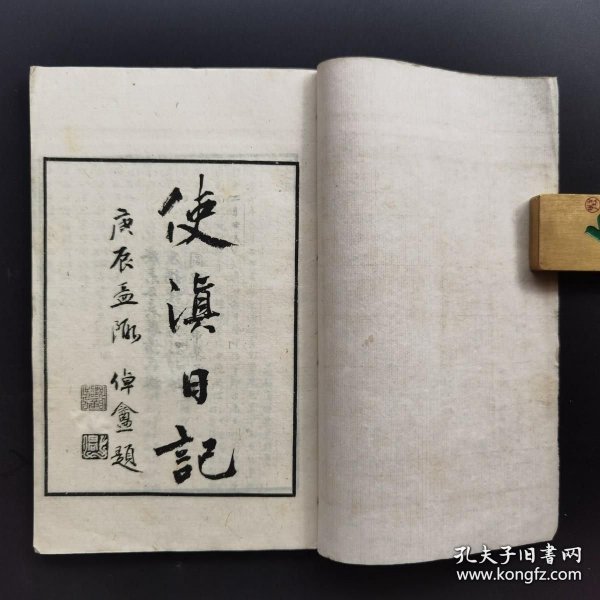 使滇日記
庚辰孟陬 倬盦題
孔夫子旧书网
www.kongfz.com